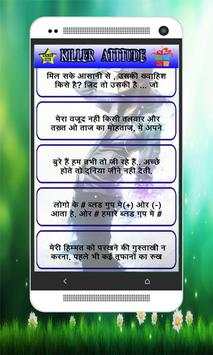 KILLER ATTITUDE
मिल सके आसानी से , उसकी ख्वाहिश
किसे है? जिद तो उसकी है ... जो
मेरा वजूद नहीं किसी तलवार और
तख़्त ओ ताज का मोहताज, में अपने
बुरे हैं हम तभी तो जी रहे हैं.. अच्छे
होते तो दुनिया जीने नही देती,
लोगो के # ब्लड गुप मे(+) ओर (-)
आता है, ओर # हमारे ब्लड गुप मे #
मेरी हिम्मत को परखने की गुस्ताखी न
करना, पहले भी कई तूफानों का रुख